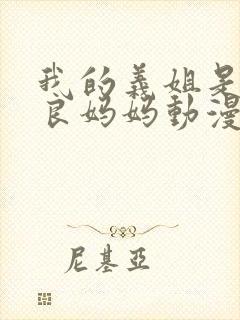 我的義姐是
良妈妈動漫
尼基亞